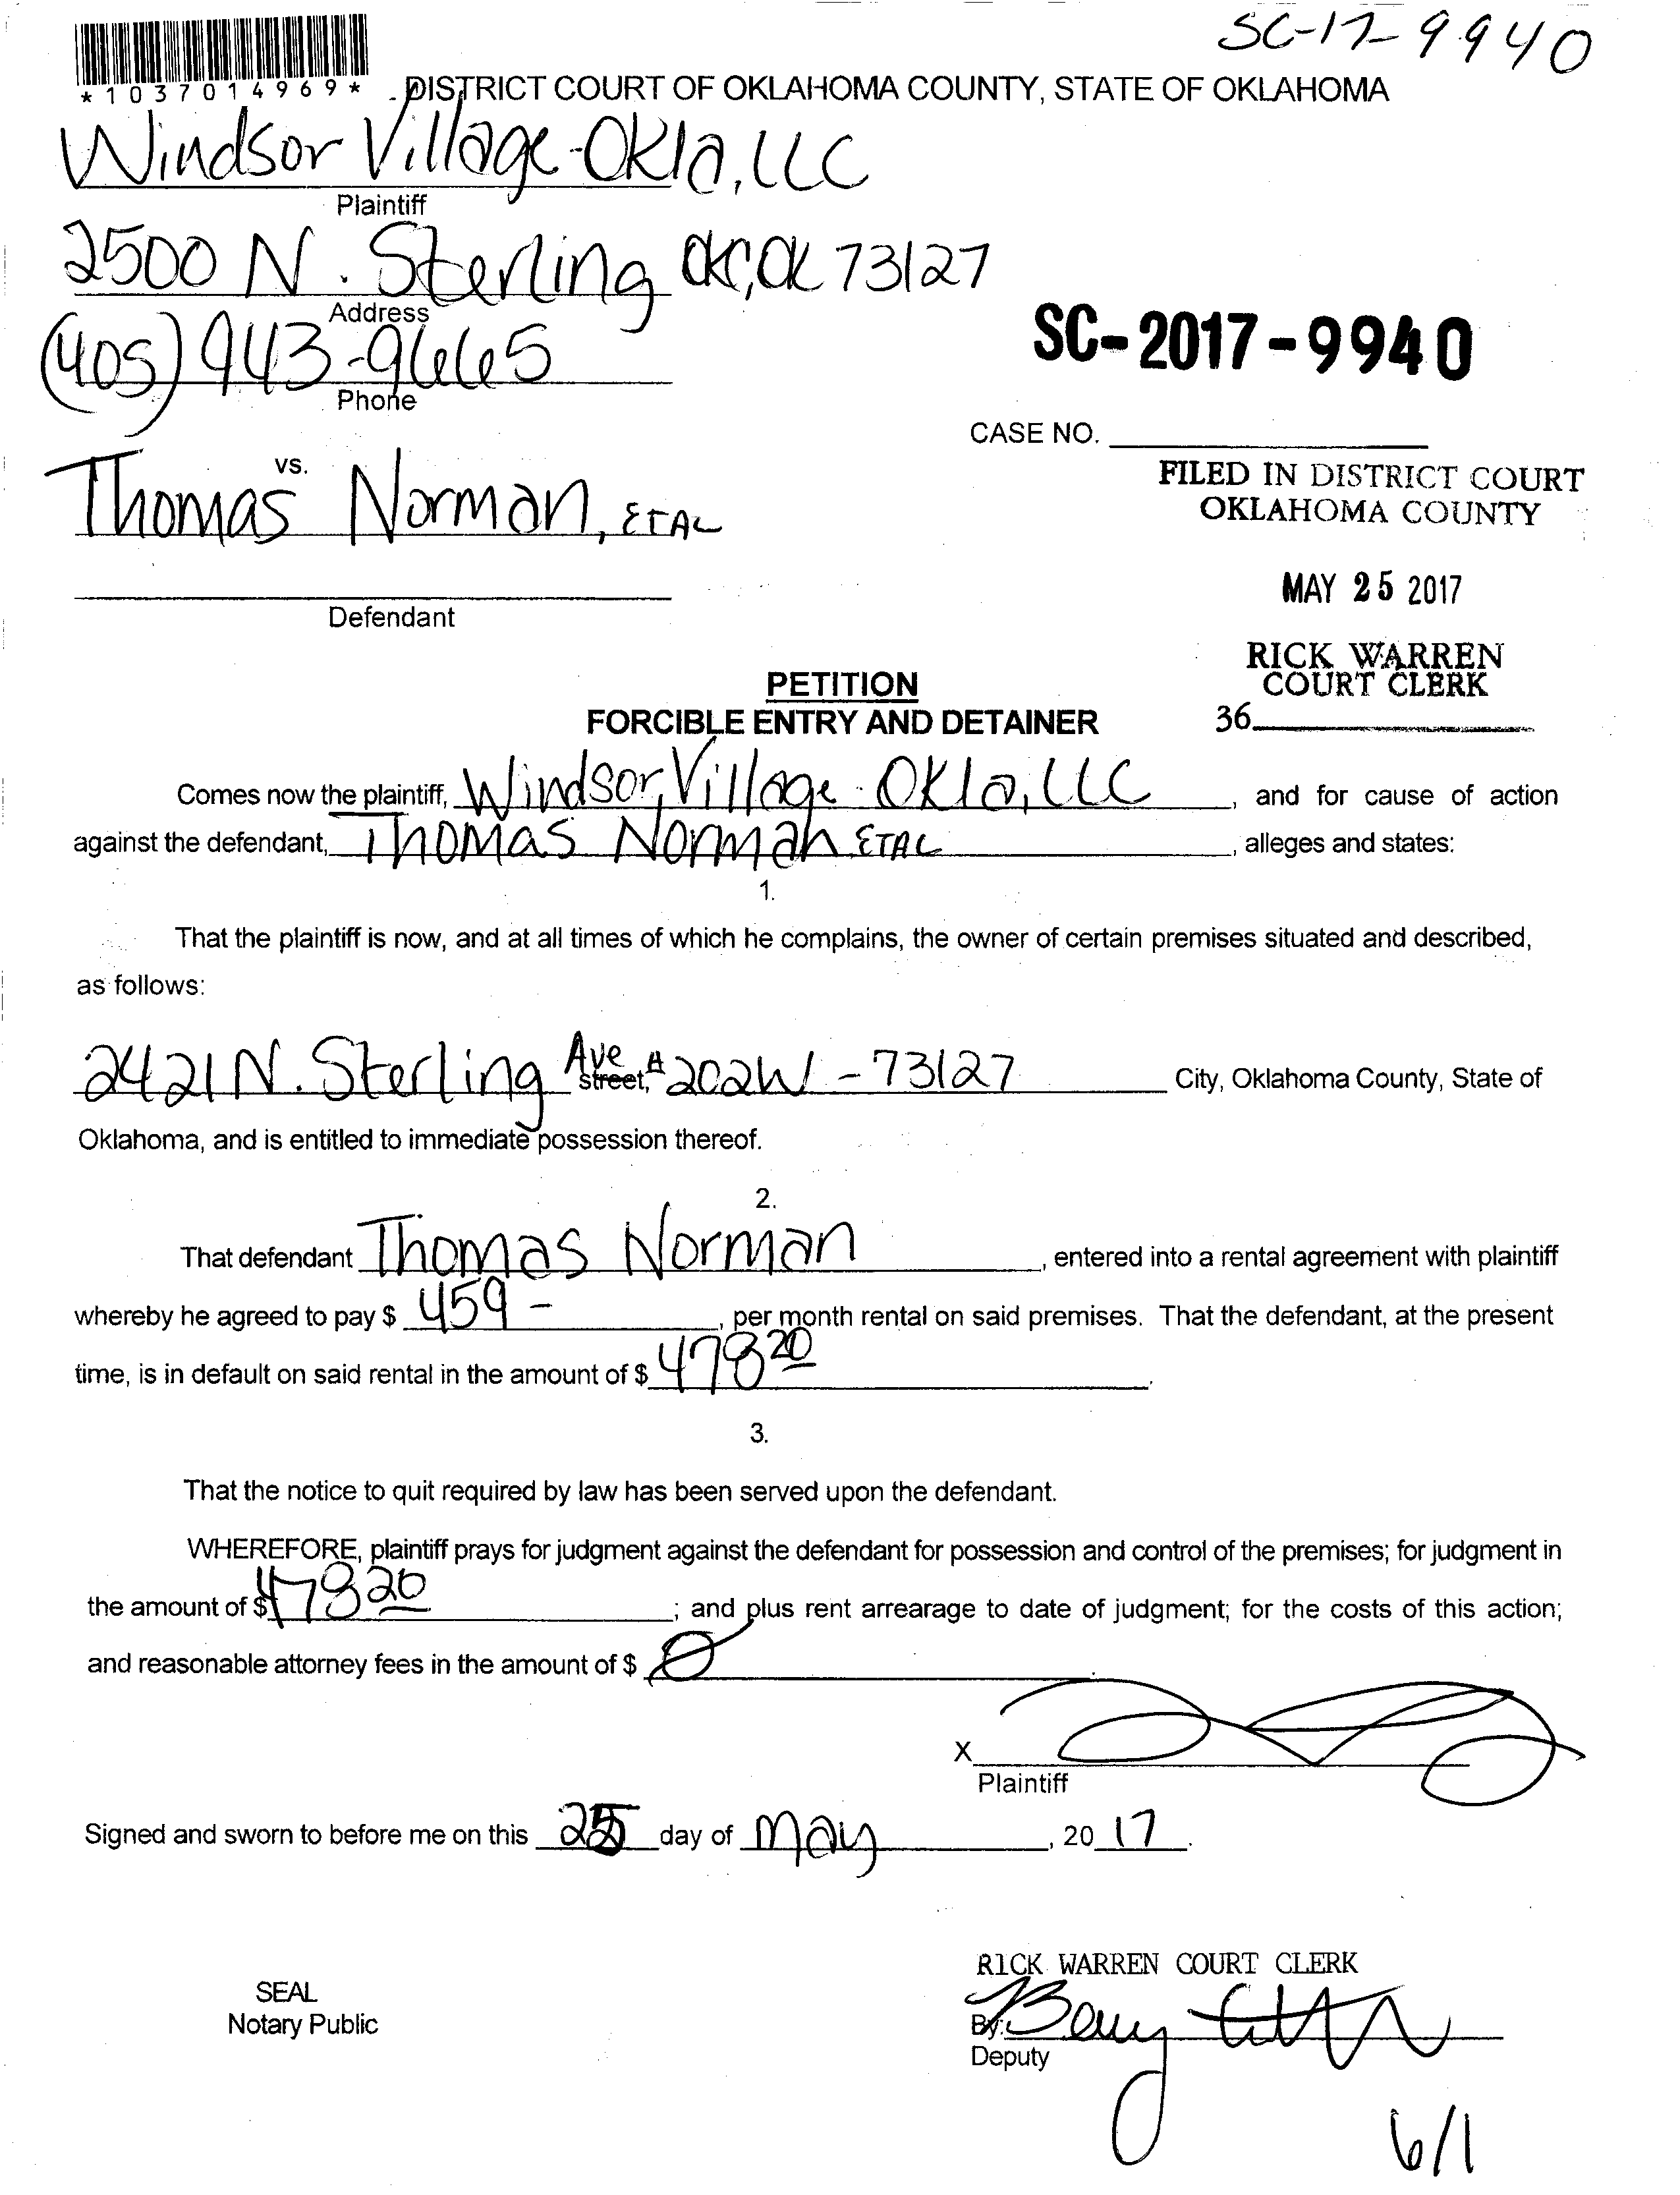 SC-17-9940
*1037014969*
DISTRICT COURT OF OKLAHOMA COUNTY, STATE OF OKLAHOMA
Windsor Village-Okla, LLC
Plaintiff
2500 N. Sterling OKC, OK 73127
Address
(405) 943-9665
Phone
SC-2017-9940
CASE NO.
vs.
Thomas Norman, ETAL
FILED IN DISTRICT COURT
OKLAHOMA COUNTY
MAY 25 2017
Defendant
RICK WARREN
COURT CLERK
36
PETITION
FORCIBLE ENTRY AND DETAINER
Comes now the plaintiff, Windsor Village-Okla, LLC, and for cause of action
against the defendant, Thomas Norman ETAL, alleges and states:
1.
That the plaintiff is now, and at all times of which he complains, the owner of certain premises situated and described,
as follows:
2421 N. Sterling Ave street, #202W - 73127 City, Oklahoma County, State of
Oklahoma, and is entitled to immediate possession thereof.
2.
That defendant Thomas Norman, entered into a rental agreement with plaintiff
whereby he agreed to pay $ 459-, per month rental on said premises. That the defendant, at the present
time, is in default on said rental in the amount of $ 478 20.
3.
That the notice to quit required by law has been served upon the defendant.
WHEREFORE, plaintiff prays for judgment against the defendant for possession and control of the premises; for judgment in
the amount of $ 478 20; and plus rent arrearage to date of judgment; for the costs of this action;
and reasonable attorney fees in the amount of $ 0.
X
Plaintiff
Signed and sworn to before me on this 25 day of May, 20 17.
RICK WARREN COURT CLERK
SEAL
Notary Public
By:
Deputy
6/1